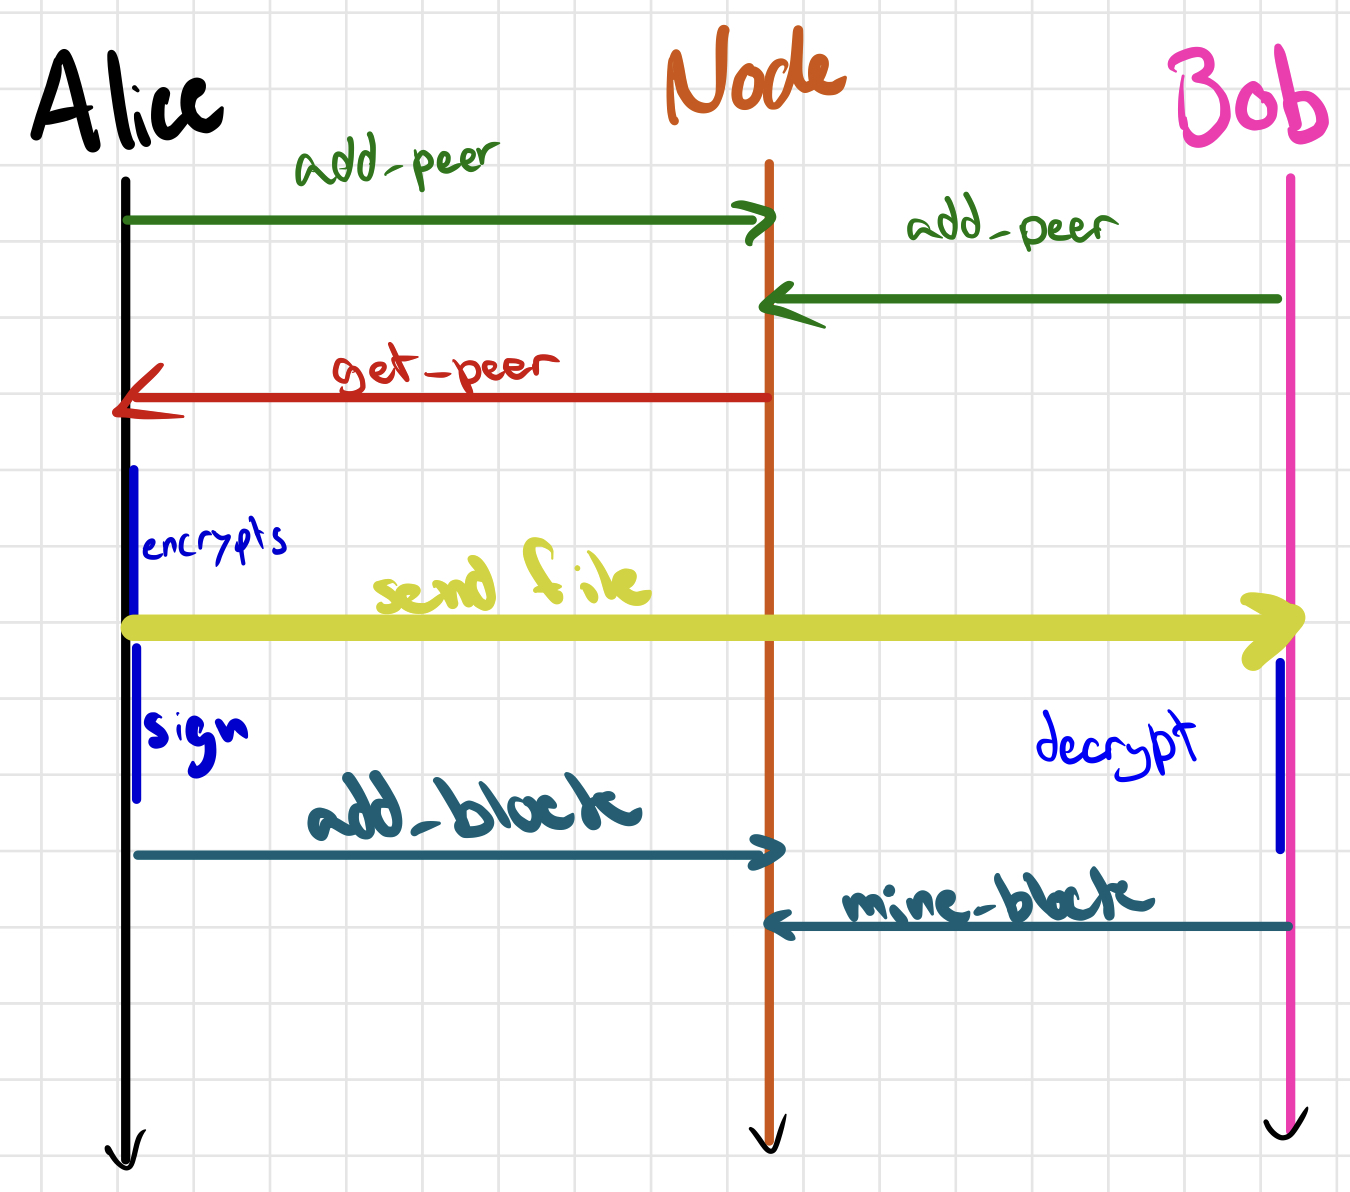 Alice
Node
Bob
add_peer
add_peer
get_peer
encrypts
send file
sign
decrypt
add_block
mine_block